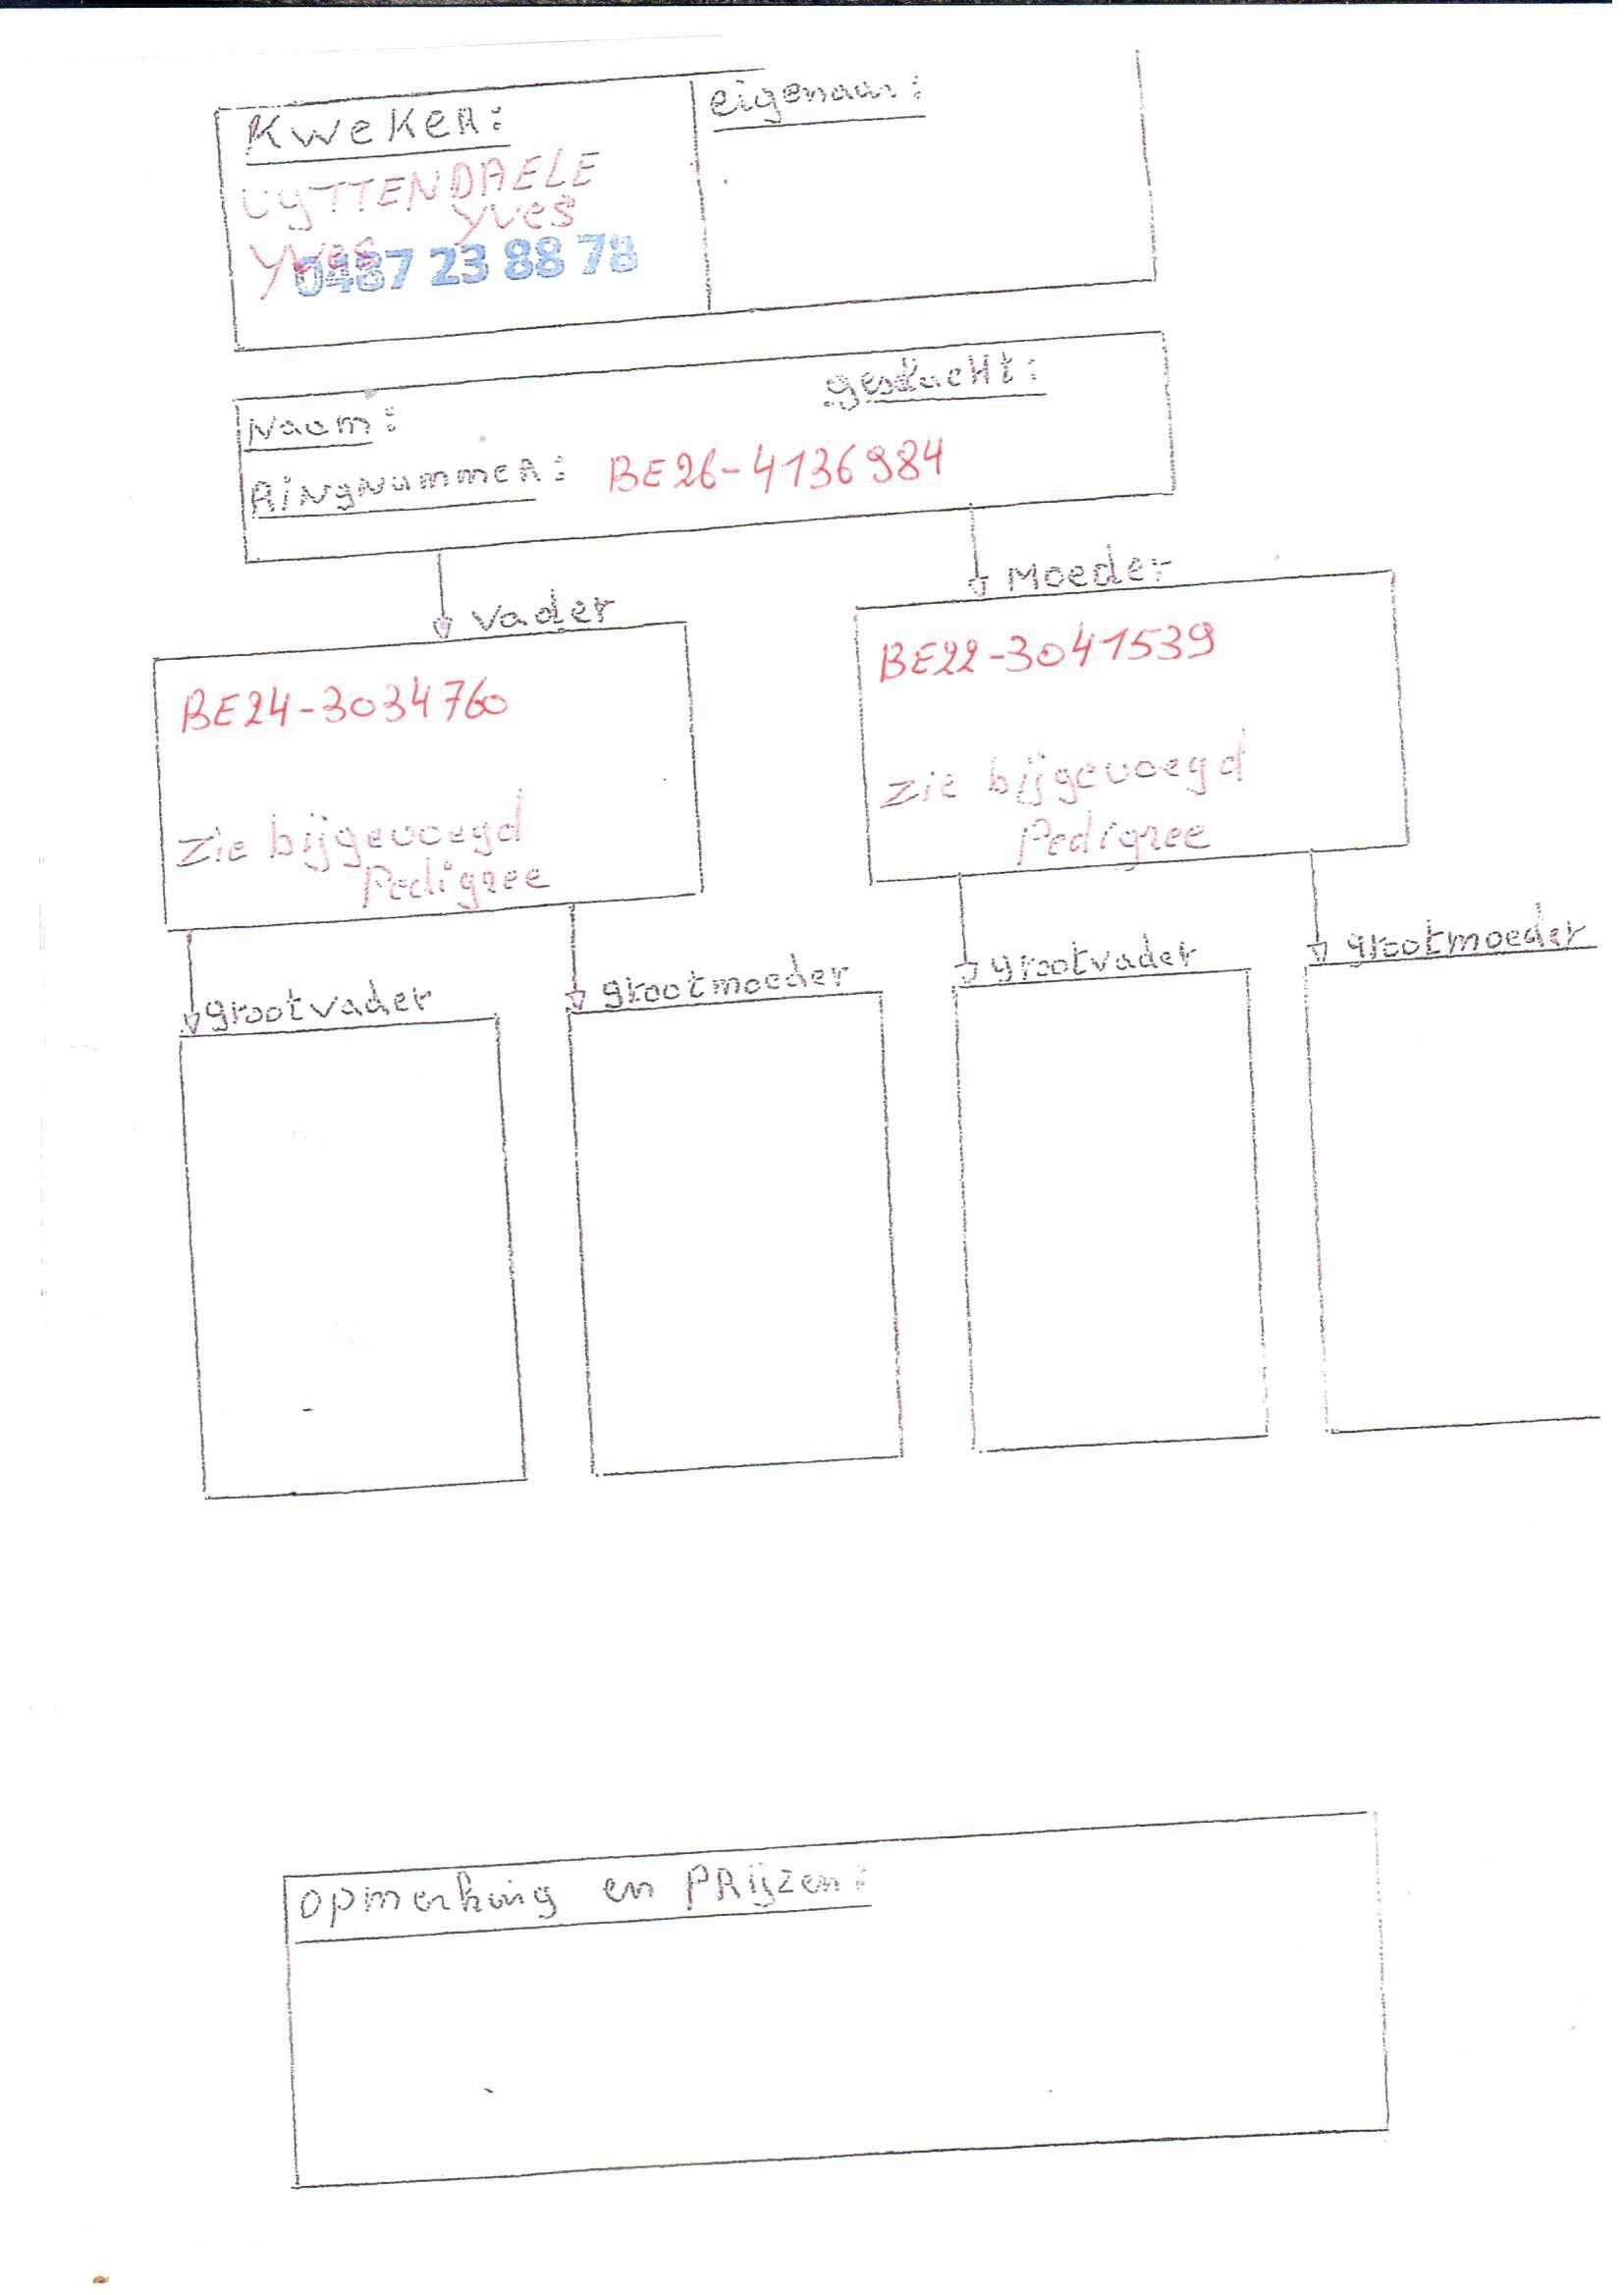 Kweker:
eigenaar:
UYTTENDAELE
YVES
YVES
0487 23 88 78
geslacht:
Naam:
Ringnummer: BE26-4136984
Moeder
Vader
BE22-3041539
BE24-3034760
Zie bijgevoegd
Pedigree
Zie bijgevoegd
Pedigree
grootvader
grootmoeder
grootvader
grootmoeder
opmerking en PRijzen: